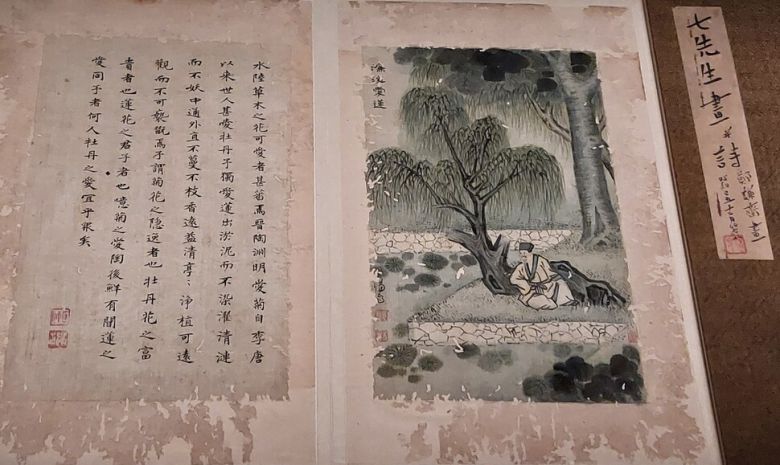 水陸草木之花可愛者甚蕃焉晉陶淵明愛菊自李唐
以來世人甚愛牡丹予獨愛蓮出淤泥而不染濯清漣
而不妖中通外直不蔓不枝香遠益清亭〻淨植可遠
觀而不可褻翫焉予謂菊花之隐逸者也牡丹花之富
貴者也蓮花之君子者也噫菊之愛陶後鮮有聞蓮之
愛同予者何人牡丹之愛宜乎衆矣
濂溪愛蓮
七先生畫并詩